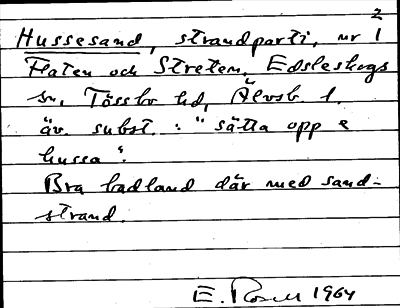 2
Hussesand, strandparti, nr 1
Flaten och Streten, Edsleskogs
sn, Tössbo hd, Älvsb. l.
äv. subst. : "sätta opp e
hussa".
Bra badland där med sand-
strand.
E. 1964